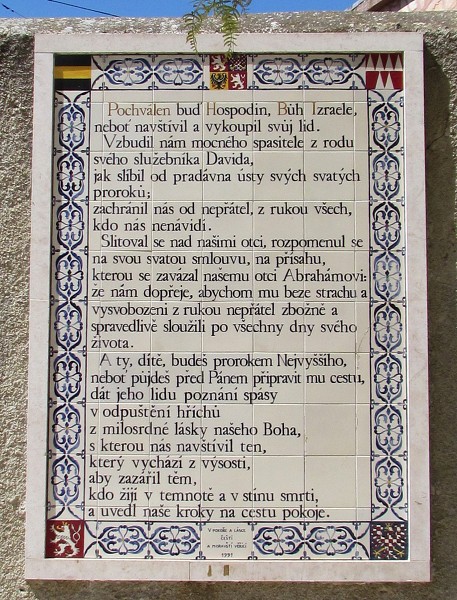 Pochválen buď Hospodin, Bůh Izraele,
neboť navštívil a vykoupil svůj lid.
Vzbudil nám mocného spasitele z rodu
svého služebníka Davida,
jak slíbil od pradávna ústy svých svatých
proroků;
zachránil nás od nepřátel, z rukou všech,
kdo nás nenávidí.
Slitoval se nad našimi otci, rozpomenul se
na svou svatou smlouvu, na přísahu,
kterou se zavázal našemu otci Abrahámovi:
že nám dopřeje, abychom mu beze strachu a
vysvobozeni z rukou nepřátel zbožně a
spravedlivě sloužili po všechny dny svého
života.
A ty, dítě, budeš prorokem Nejvyššího,
neboť půjdeš před Pánem připravit mu cestu,
dát jeho lidu poznání spásy
v odpuštění hříchů
z milosrdné lásky našeho Boha,
s kterou nás navštívil ten,
který vychází z výsosti,
aby zazářil těm,
kdo žijí v temnotě a v stínu smrti,
a uvedl naše kroky na cestu pokoje.
V POKOŘE A LÁSCE
ČEŠTÍ
A MORAVŠTÍ VĚŘÍCÍ
1991